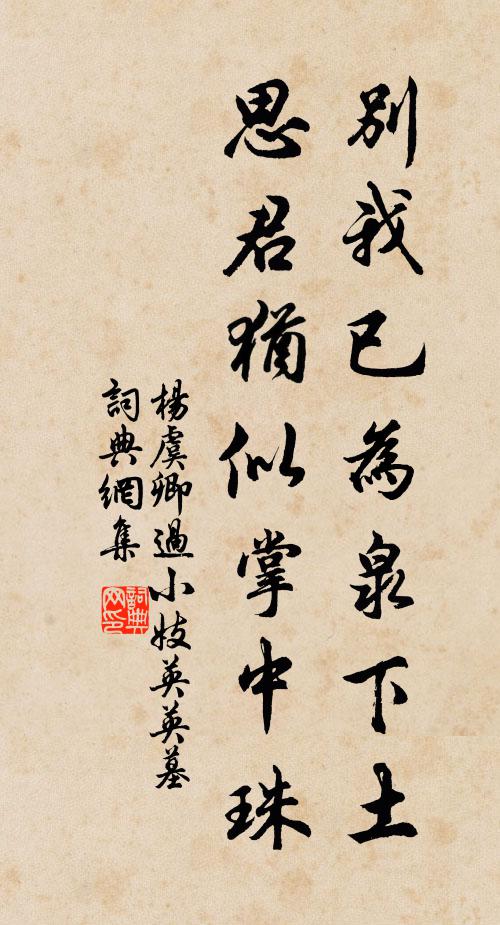 別我已為泉下土
思君猶似掌中珠
楊虞卿過小妓英英墓
詞典網集
詞典网印